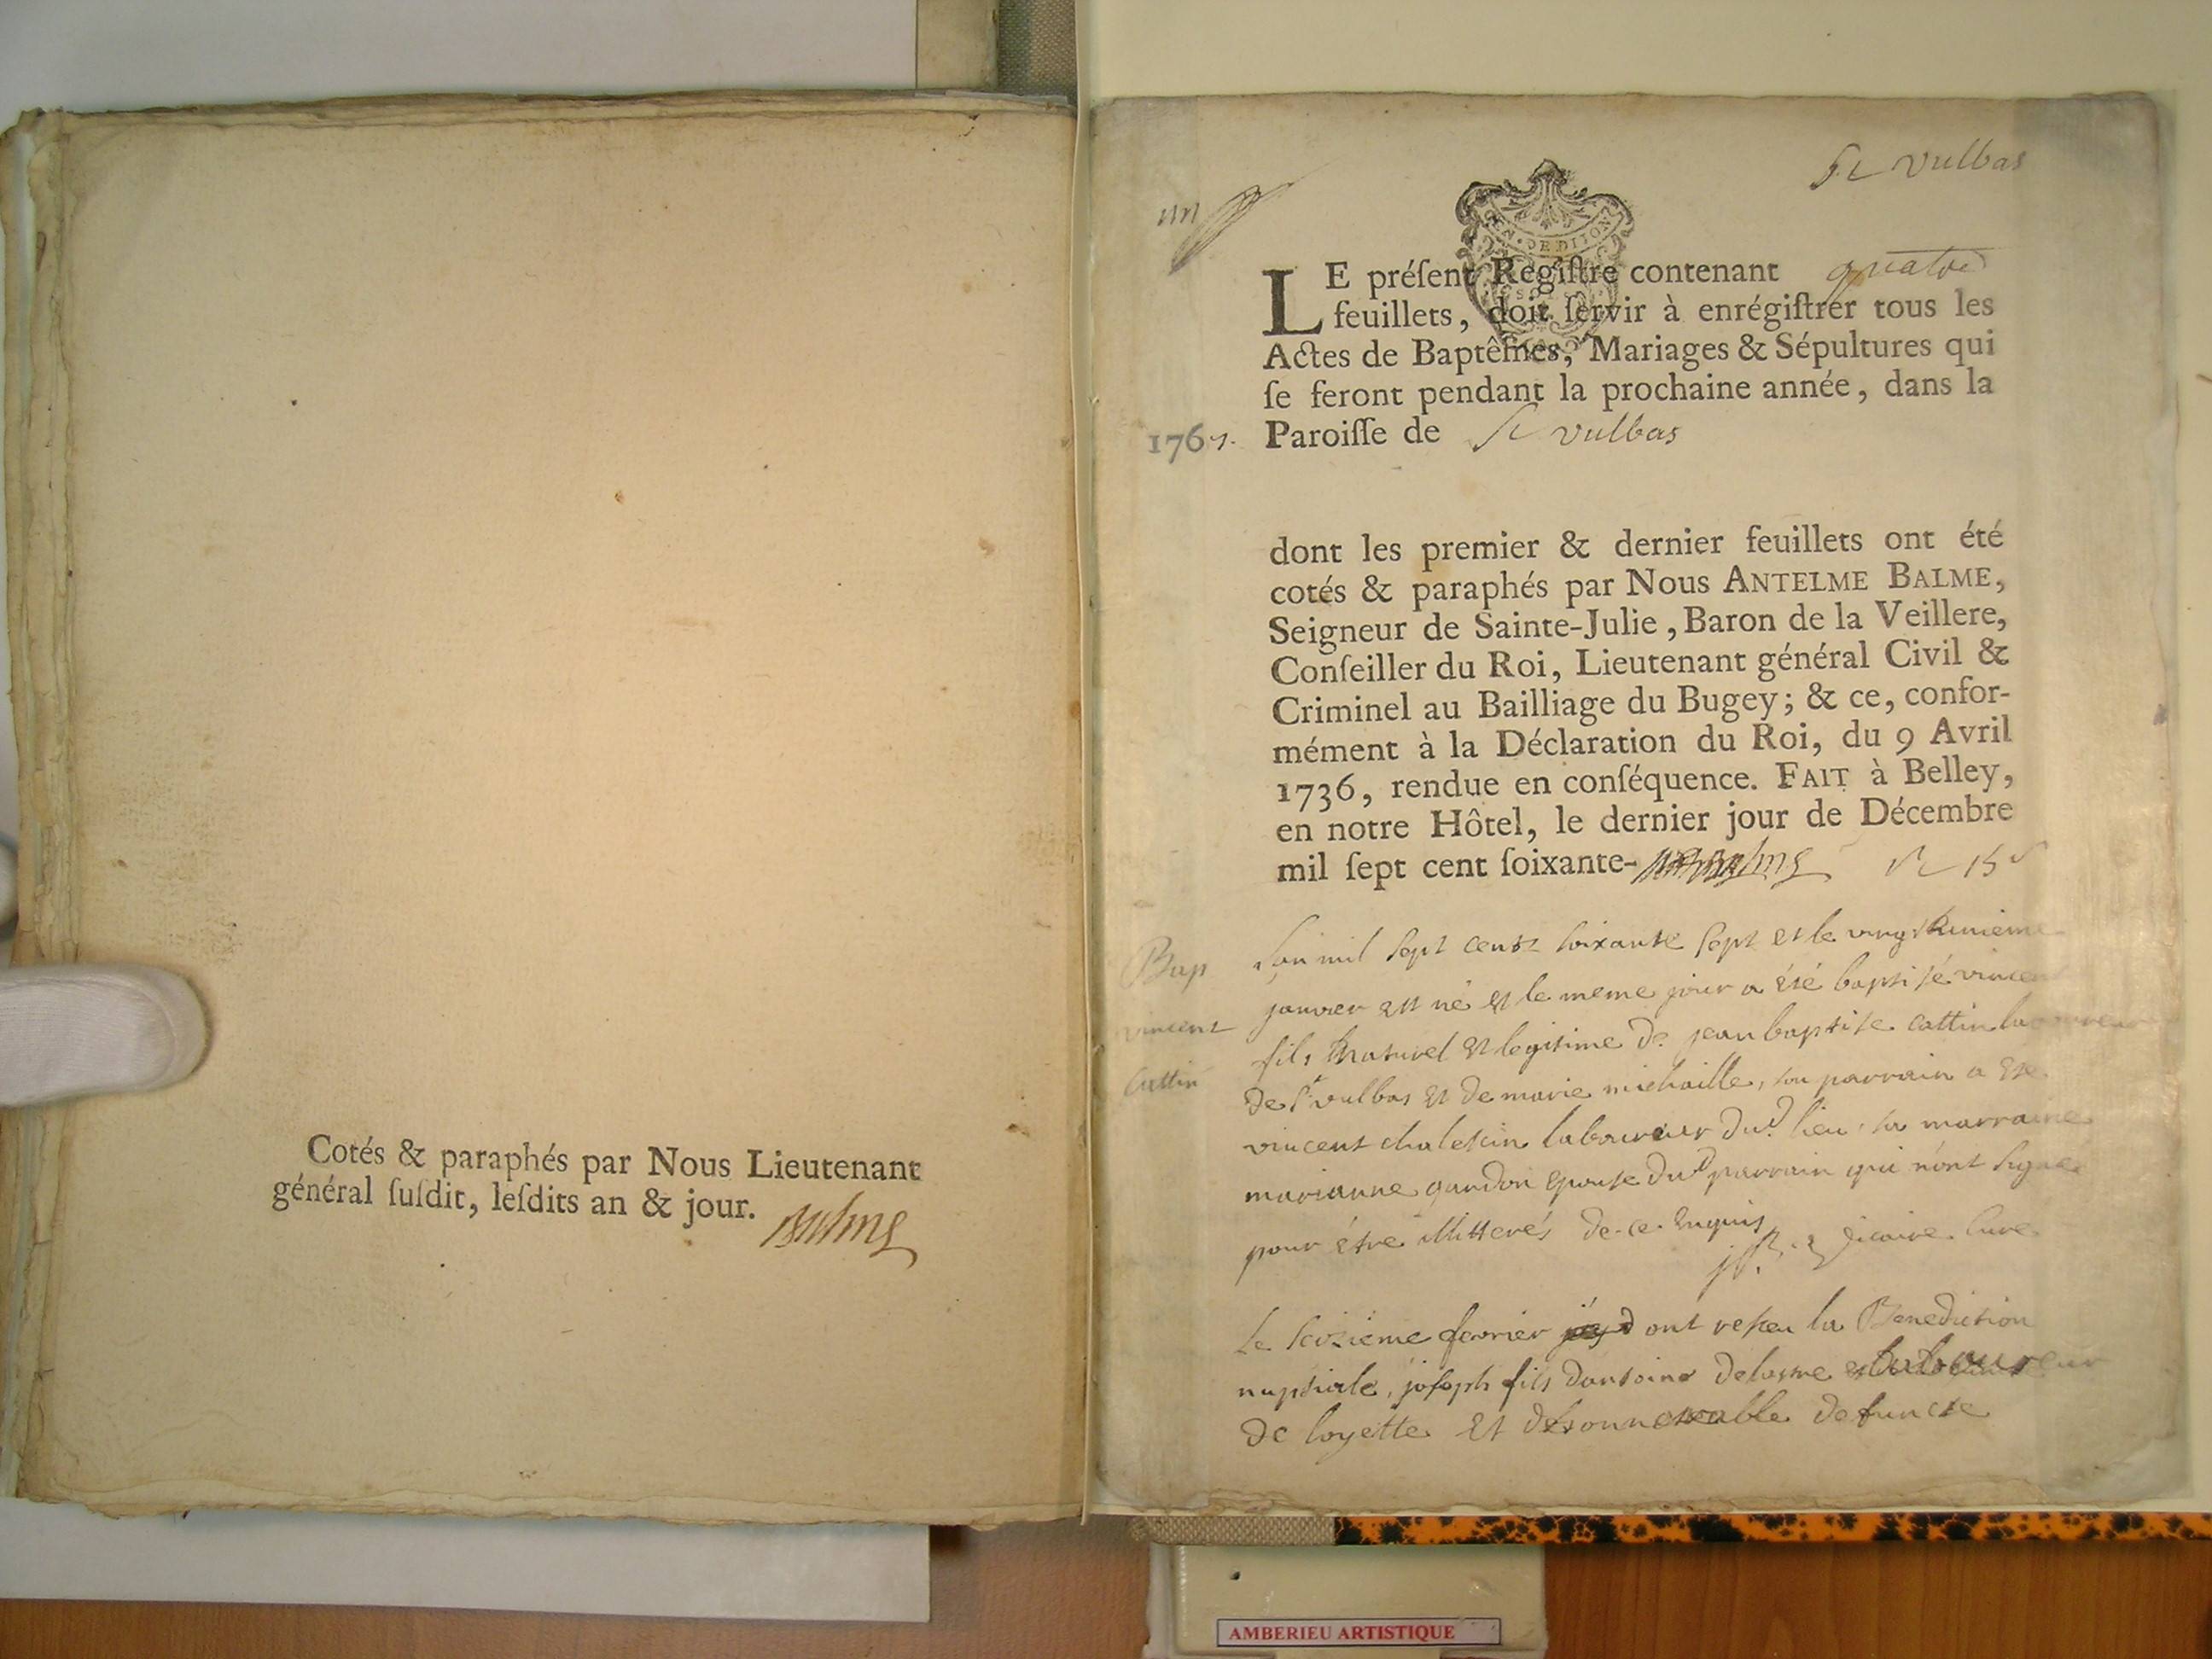 Cotés & paraphés par Nous Lieutenant
général ſuſdit, leſdits an & jour.
Balme
St vulbas
un
GEN. DE DIJON
LE préſent Regiſtre contenant quatre
feuillets, doit ſervir à enrégiſtrer tous les
Actes de Baptêmes, Mariages & Sépultures qui
ſe feront pendant la prochaine année, dans la
1767. Paroiſſe de St vulbas
dont les premier & dernier feuillets ont été
cotés & paraphés par Nous ANTELME BALME,
Seigneur de Sainte-Julie, Baron de la Veillere,
Conſeiller du Roi, Lieutenant général Civil &
Criminel au Bailliage du Bugey; & ce, confor-
mément à la Déclaration du Roi, du 9 Avril
1736, rendue en conſéquence. FAIT à Belley,
en notre Hôtel, le dernier jour de Décembre
mil ſept cent ſoixante- Balme
Bap
vincent
Cattin
L'an mil sept cent soixante sept et le vingt huitieme
janvier est né et le meme jour a été baptisé vincent
fils naturel et legitime de jean baptiste cattin laboureur
de St vulbas et de marie michaille, son parrain a ete
vincent chaletin laboureur dud. lieu, sa marraine
marianne gandon epouse dud parrain qui n'ont signé
pour être illitterés de-ce-enquis
vicaire Curé
Le seizieme fevrier ont resceu la Benediction
nuptiale, joseph fils d'antoine delorme laboureur
de loyette et d'honnorable defuncte
AMBERIEU ARTISTIQUE